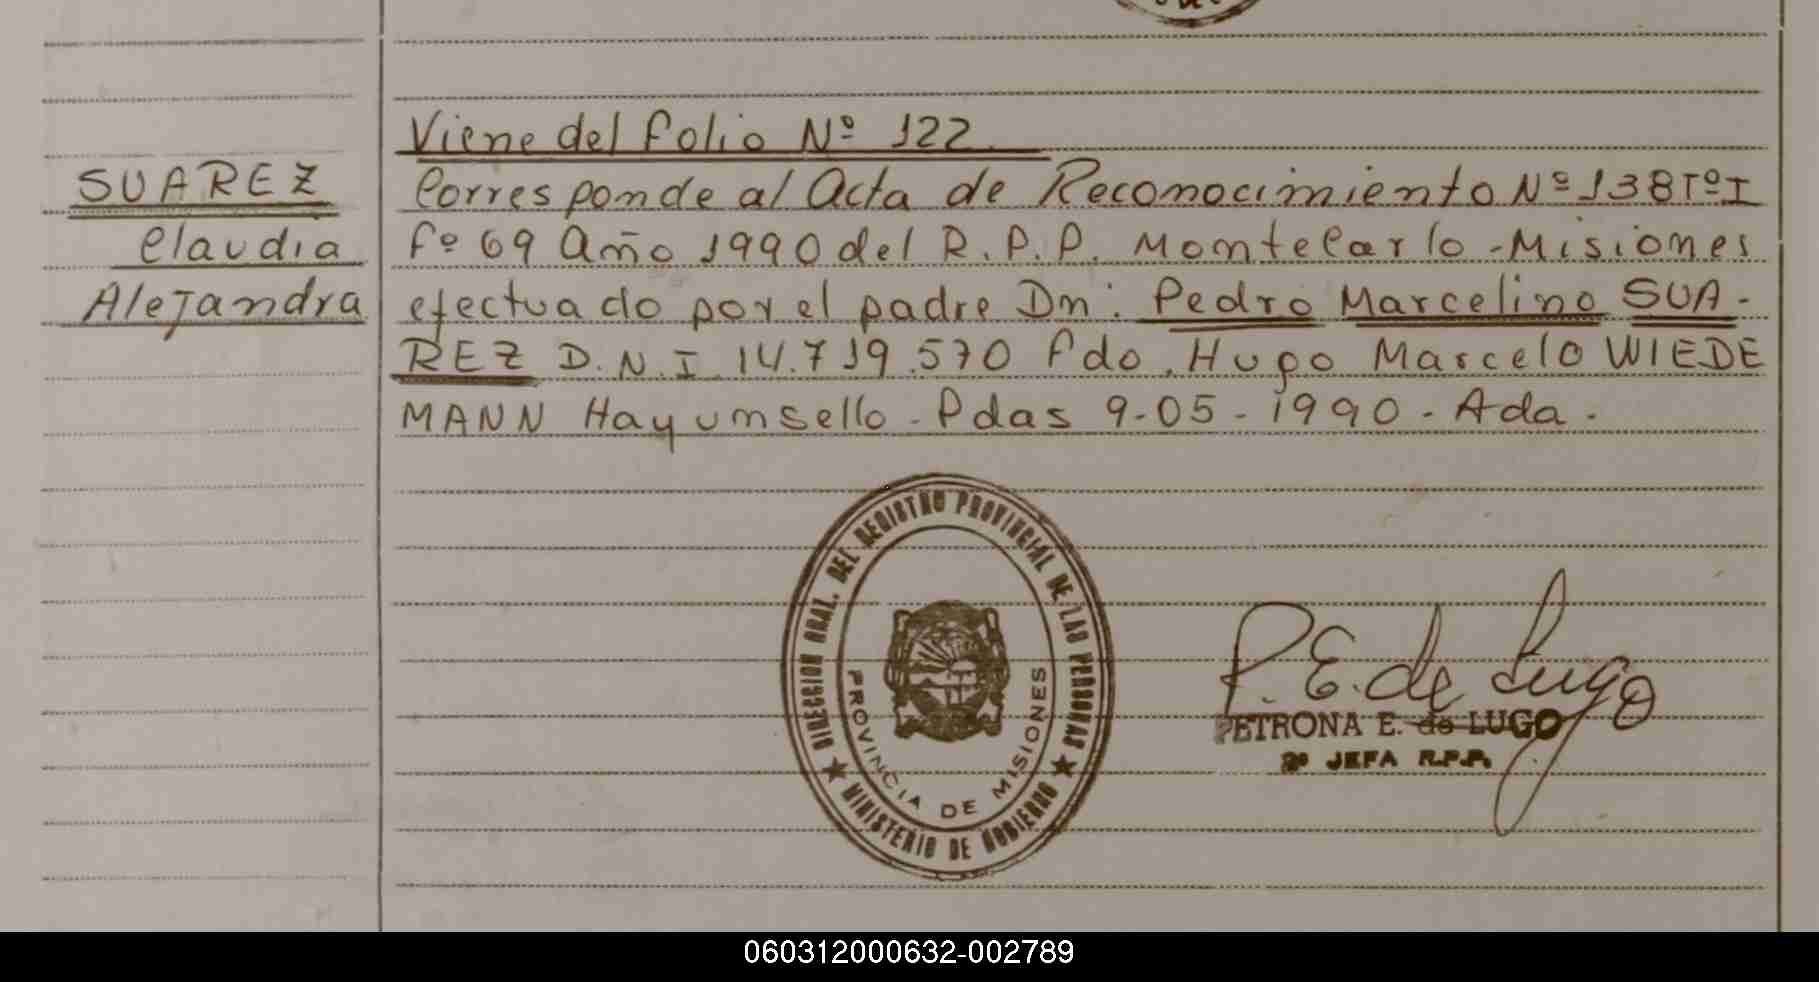 Viene del folio Nº 122
SUAREZ
Claudia
Alejandra
Corresponde al Acta de Reconocimiento Nº 138 Tº I
fº 69 Año 1990 del R.P.P. Montecarlo - Misiones
efectuado por el padre Dn: Pedro Marcelino SUA-
REZ D.N.I. 14.719.570 fdo. Hugo Marcelo WIEDE
MANN Hay un sello - Pdas 9-05-1990 - Ada.
DIRECCION GRAL. DEL REGISTRO PROVINCIAL DE LAS PERSONAS
MINISTERIO DE GOBIERNO
PROVINCIA DE MISIONES
P. E. de Lugo
PETRONA E. de LUGO
2º JEFA R.P.P.
060312000632-002789